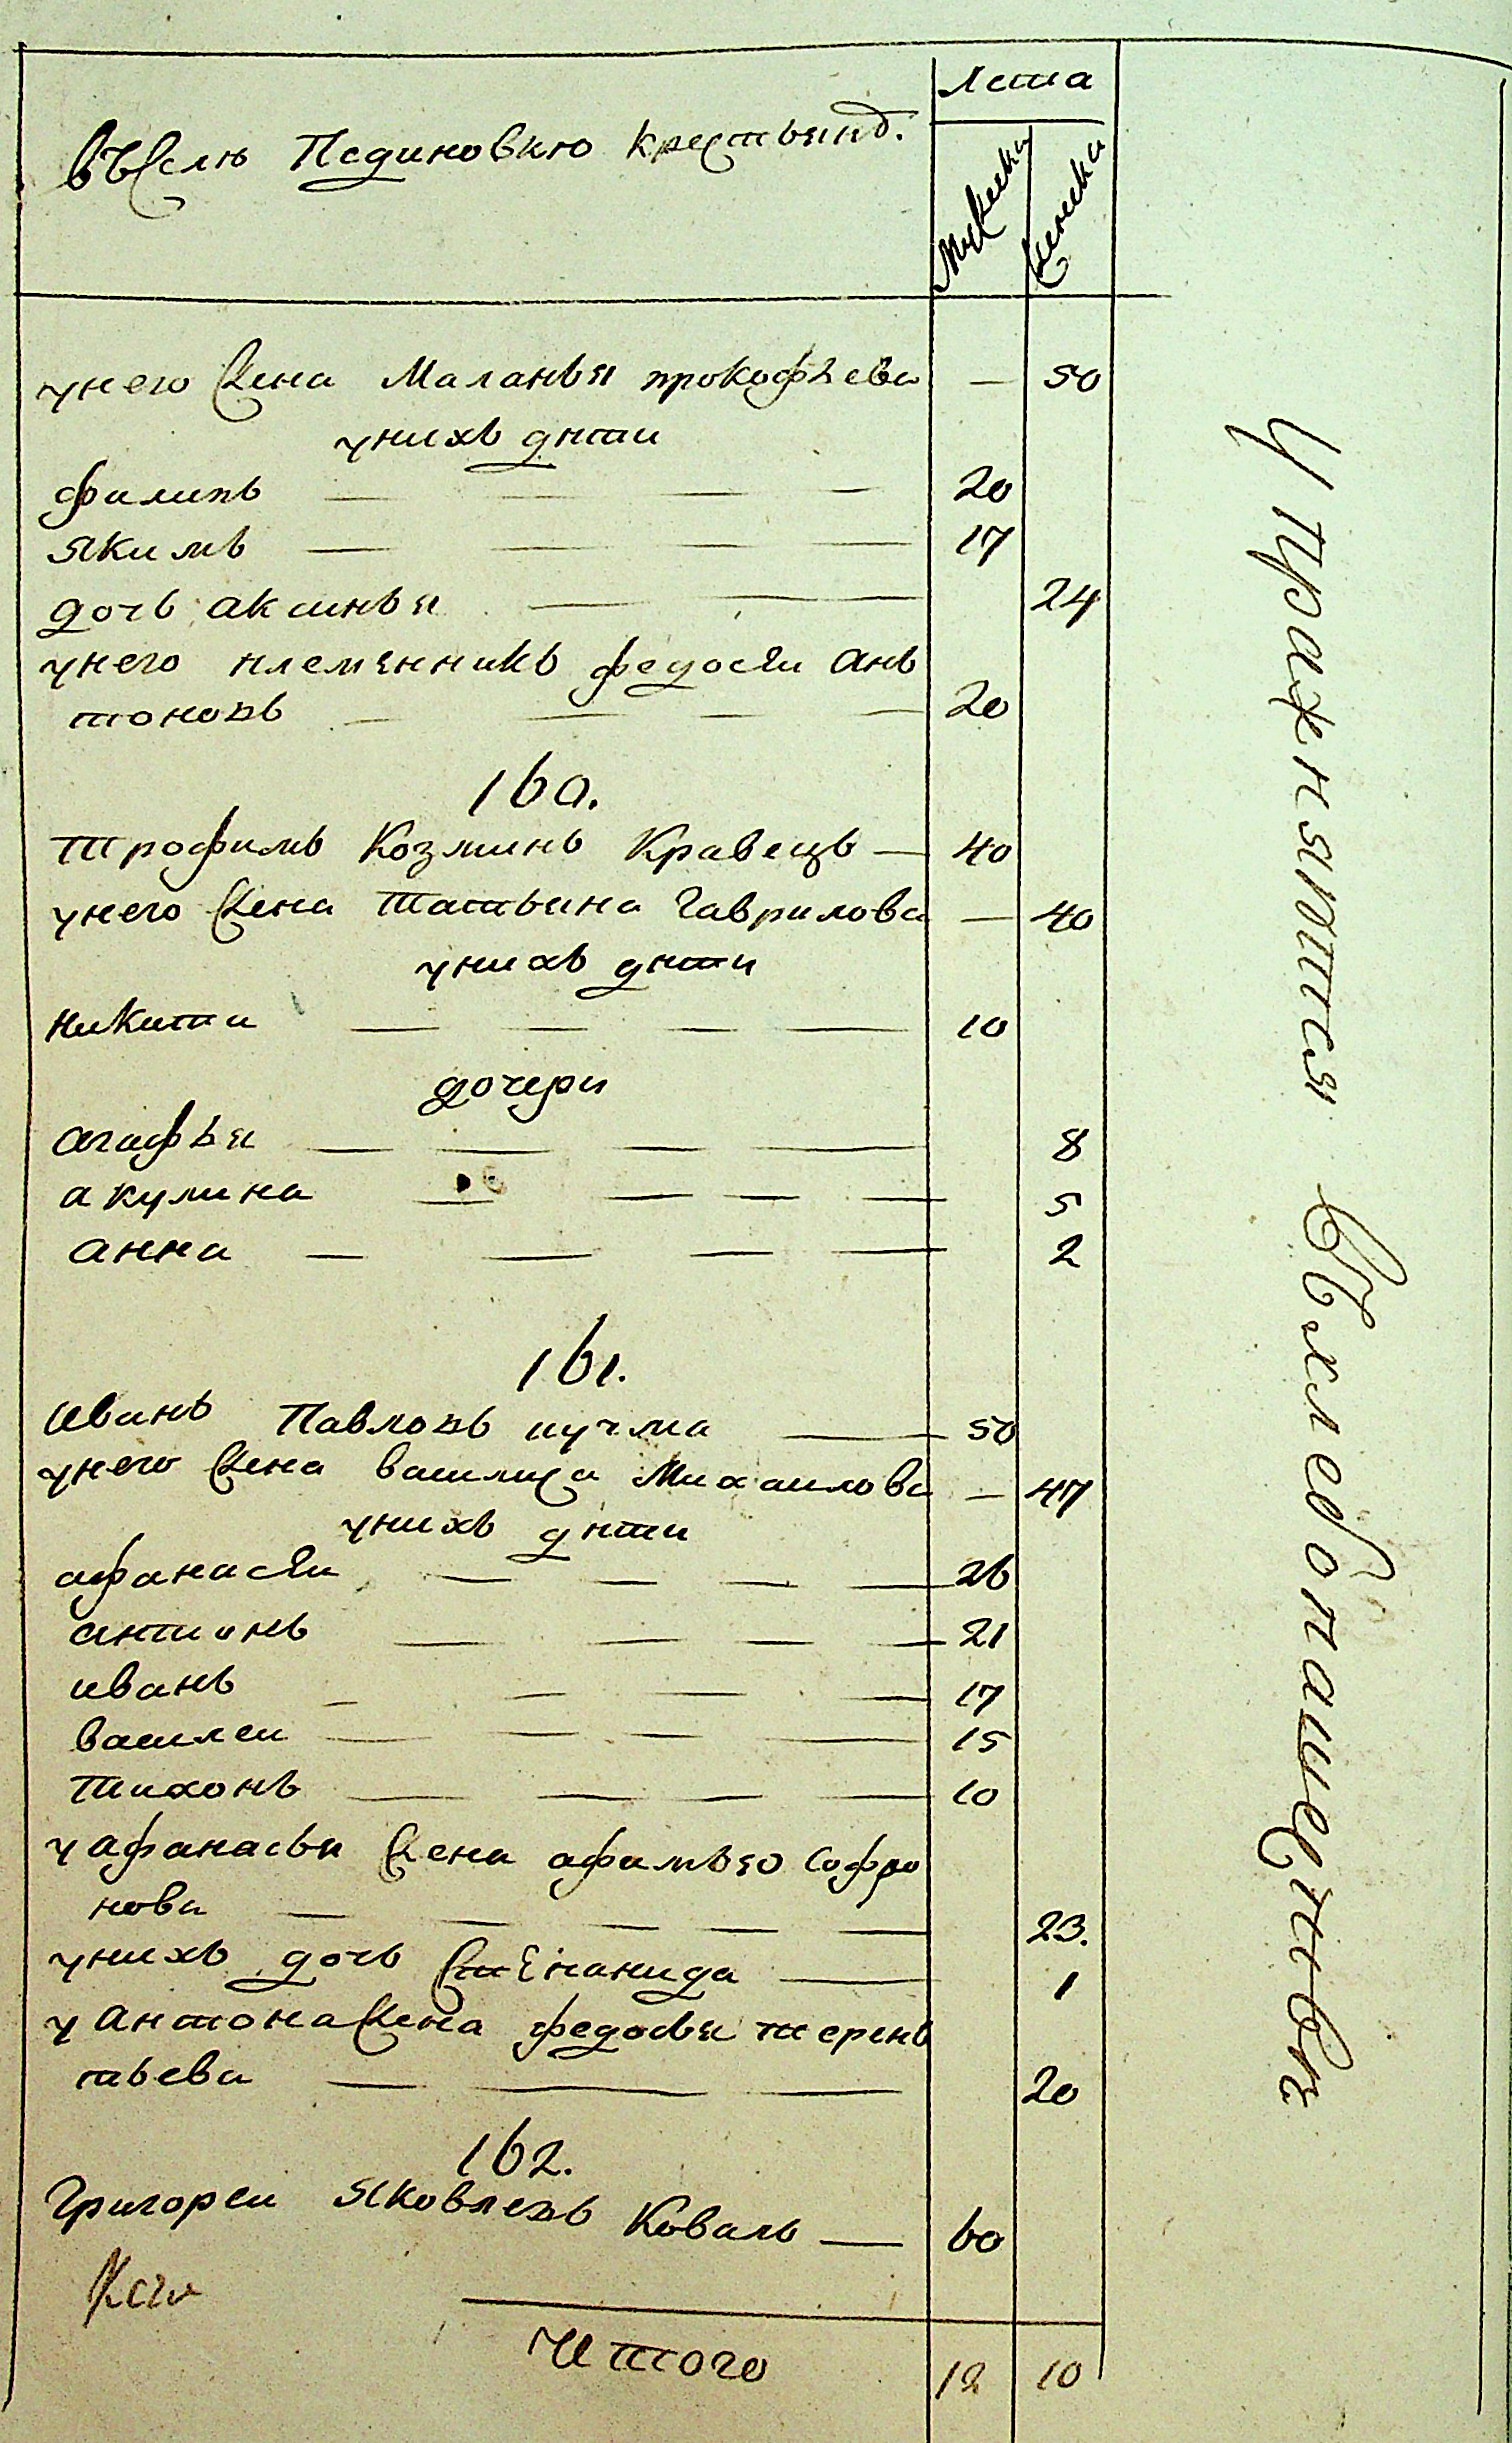 Лета
въ селѣ Пединовкѣ крестьянъ.
Мужеска
Женска
унего жена Маланья прокофьева — 50
унихъ дѣти
филипъ 20
якимъ 17
дочь аксинья 24
унего племянникъ федосѣи ань
тоновъ 20
160.
трофимъ Козминъ Кравецъ — 40
унего жена татьяна гаврилова — 40
унихъ дѣти
никита 10
дочери
агафья 8
акулина 5
анна 2
161.
иванъ Павловъ кучма 50
унего жена василиса Михаилова — 47
унихъ дѣти
афанасѣи 26
антонъ 21
иванъ 17
василеи 15
тихонъ 10
у афанасья жена афимья софро
нова 23.
унихъ дочь степанида 1
у антона жена федосья терень
тьева 20
162.
григореи яковлевъ Коваль — 60
Итого 12 10
Упражняются въ хлебопашествѣ